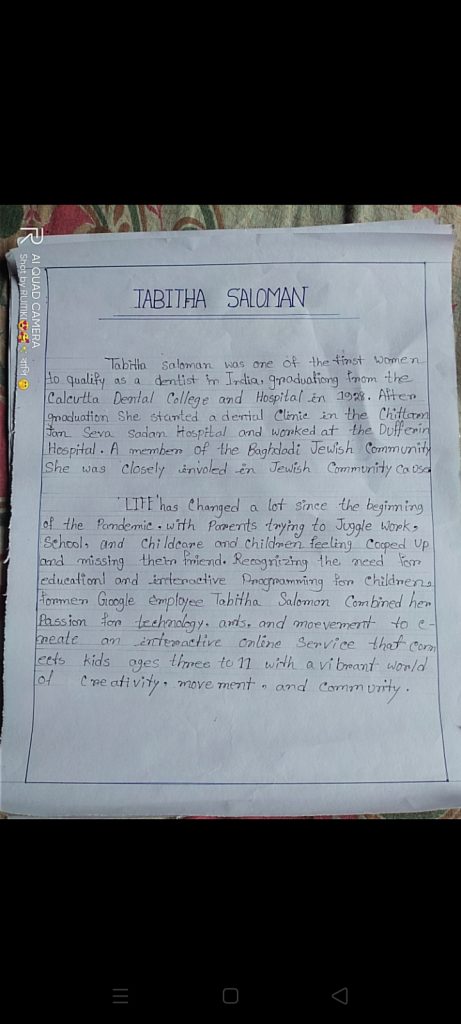 TABITHA SALOMAN
Tabitha saloman was one of the first women
to qualify as a dentist in India, graduationg from the
Calcutta Dental College and Hospital in 1928. After
graduation She started a dental Clinic in the Chittaran
Jan Seva sadan Hospital and worked at the Dufferin
Hospital. A member of the Baghdadi Jewish Community
She was closely involed in Jewish Community Cause
'LIFE' has Changed a lot since the beginning
of the Pandemic, with Parents trying to Juggle Work,
School, and Childcare and Children feeling Cooped Up
and missing their friend. Recognizing the need for
educationl and interactive Programming for Children,
former Google employee Tabitha Salomon Combined her
Passion for technology, arts, and moevement to c-
reate an interactive Online Service that conn
ects kids ages three to 11 with a vibrant world
of Creativity, movement, and Community.
AI QUAD CAMERA
Shot by RUITIKI